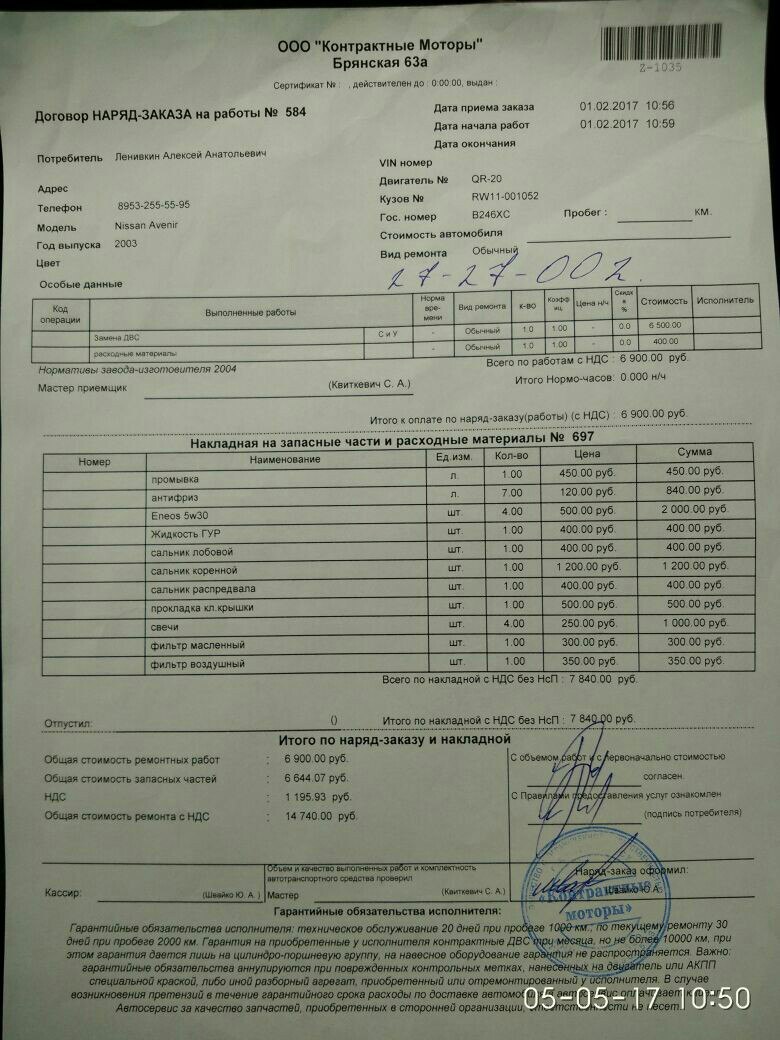 ООО "Контрактные Моторы"
Брянская 63а
Z-1035
Сертификат № : , действителен до : 0:00:00, выдан :
Договор НАРЯД-ЗАКАЗА на работы № 584
Дата приема заказа 01.02.2017 10:56
Дата начала работ 01.02.2017 10:59
Дата окончания
Потребитель Ленивкин Алексей Анатольевич
VIN номер
Двигатель № QR-20
Адрес
Кузов № RW11-001052
Телефон 8953-255-55-95
Гос. номер В246ХС Пробег : КМ.
Модель Nissan Avenir
Стоимость автомобиля
Год выпуска 2003
Вид ремонта Обычный
Цвет
27-27-002.
Особые данные
Код операции Выполненные работы Норма вре-мени Вид ремонта К-ВО Коэфф иц. Цена н/ч Скидк и % Стоимость Исполнитель
Замена ДВС С и У - Обычный 1.0 1.00 - 0.0 6 500.00
расходные материалы - Обычный 1.0 1.00 - 0.0 400.00
Всего по работам с НДС : 6 900.00 руб.
Нормативы завода-изготовителя 2004
Итого Нормо-часов: 0.000 н/ч
Мастер приемщик (Квиткевич С. А.)
Итого к оплате по наряд-заказу(работы) (с НДС) : 6 900.00 руб.
Накладная на запасные части и расходные материалы № 697
Номер Наименование Ед.изм. Кол-во Цена Сумма
промывка л. 1.00 450.00 руб. 450.00 руб.
антифриз л. 7.00 120.00 руб. 840.00 руб.
Eneos 5w30 шт. 4.00 500.00 руб. 2 000.00 руб.
Жидкость ГУР шт. 1.00 400.00 руб. 400.00 руб.
сальник лобовой шт. 1.00 400.00 руб. 400.00 руб.
сальник коренной шт. 1.00 1 200.00 руб. 1 200.00 руб.
сальник распредвала шт. 1.00 400.00 руб. 400.00 руб.
прокладка кл.крышки шт. 1.00 500.00 руб. 500.00 руб.
свечи шт. 4.00 250.00 руб. 1 000.00 руб.
фильтр масленный шт. 1.00 300.00 руб. 300.00 руб.
фильтр воздушный шт. 1.00 350.00 руб. 350.00 руб.
Всего по накладной с НДС без НсП : 7 840.00 руб.
Отпустил: () Итого по накладной с НДС без НсП : 7 840.00 руб.
Итого по наряд-заказу и накладной
Общая стоимость ремонтных работ : 6 900.00 руб.
Общая стоимость запасных частей : 6 644.07 руб.
НДС : 1 195.93 руб.
Общая стоимость ремонта с НДС : 14 740.00 руб.
С объемом работ и с первоначально стоимостью
согласен.
С Правилами предоставления услуг ознакомлен
(подпись потребителя)
Объем и качество выполненных работ и комплектность
автотранспортного средства проверил
Наряд-заказ оформил:
Кассир: (Швайко Ю. А. ) Мастер (Квиткевич С. А.) Швайко Ю.А.
«Контрактные
моторы»
Гарантийные обязательства исполнителя:
Гарантийные обязательства исполнителя: техническое обслуживание 20 дней при пробеге 1000 км., по текущему ремонту 30
дней при пробеге 2000 км. Гарантия на приобретенные у исполнителя контрактные ДВС три месяца, но не более 10000 км, при
этом гарантия дается лишь на цилиндро-поршневую группу, на навесное оборудование гарантия не распространяется. Важно:
гарантийные обязательства аннулируются при поврежденных контрольных метках, нанесенных на двигатель или АКПП
специальной краской, либо иной разборный агрегат, приобретенный или отремонтированный у исполнителя. В случае
возникновения претензий в течение гарантийного срока расходы по доставке автомобиля в автосервис оплачивает клиент.
Автосервис за качество запчастей, приобретенных в сторонней организации, ответственности не несет.
05-05-17 10:50